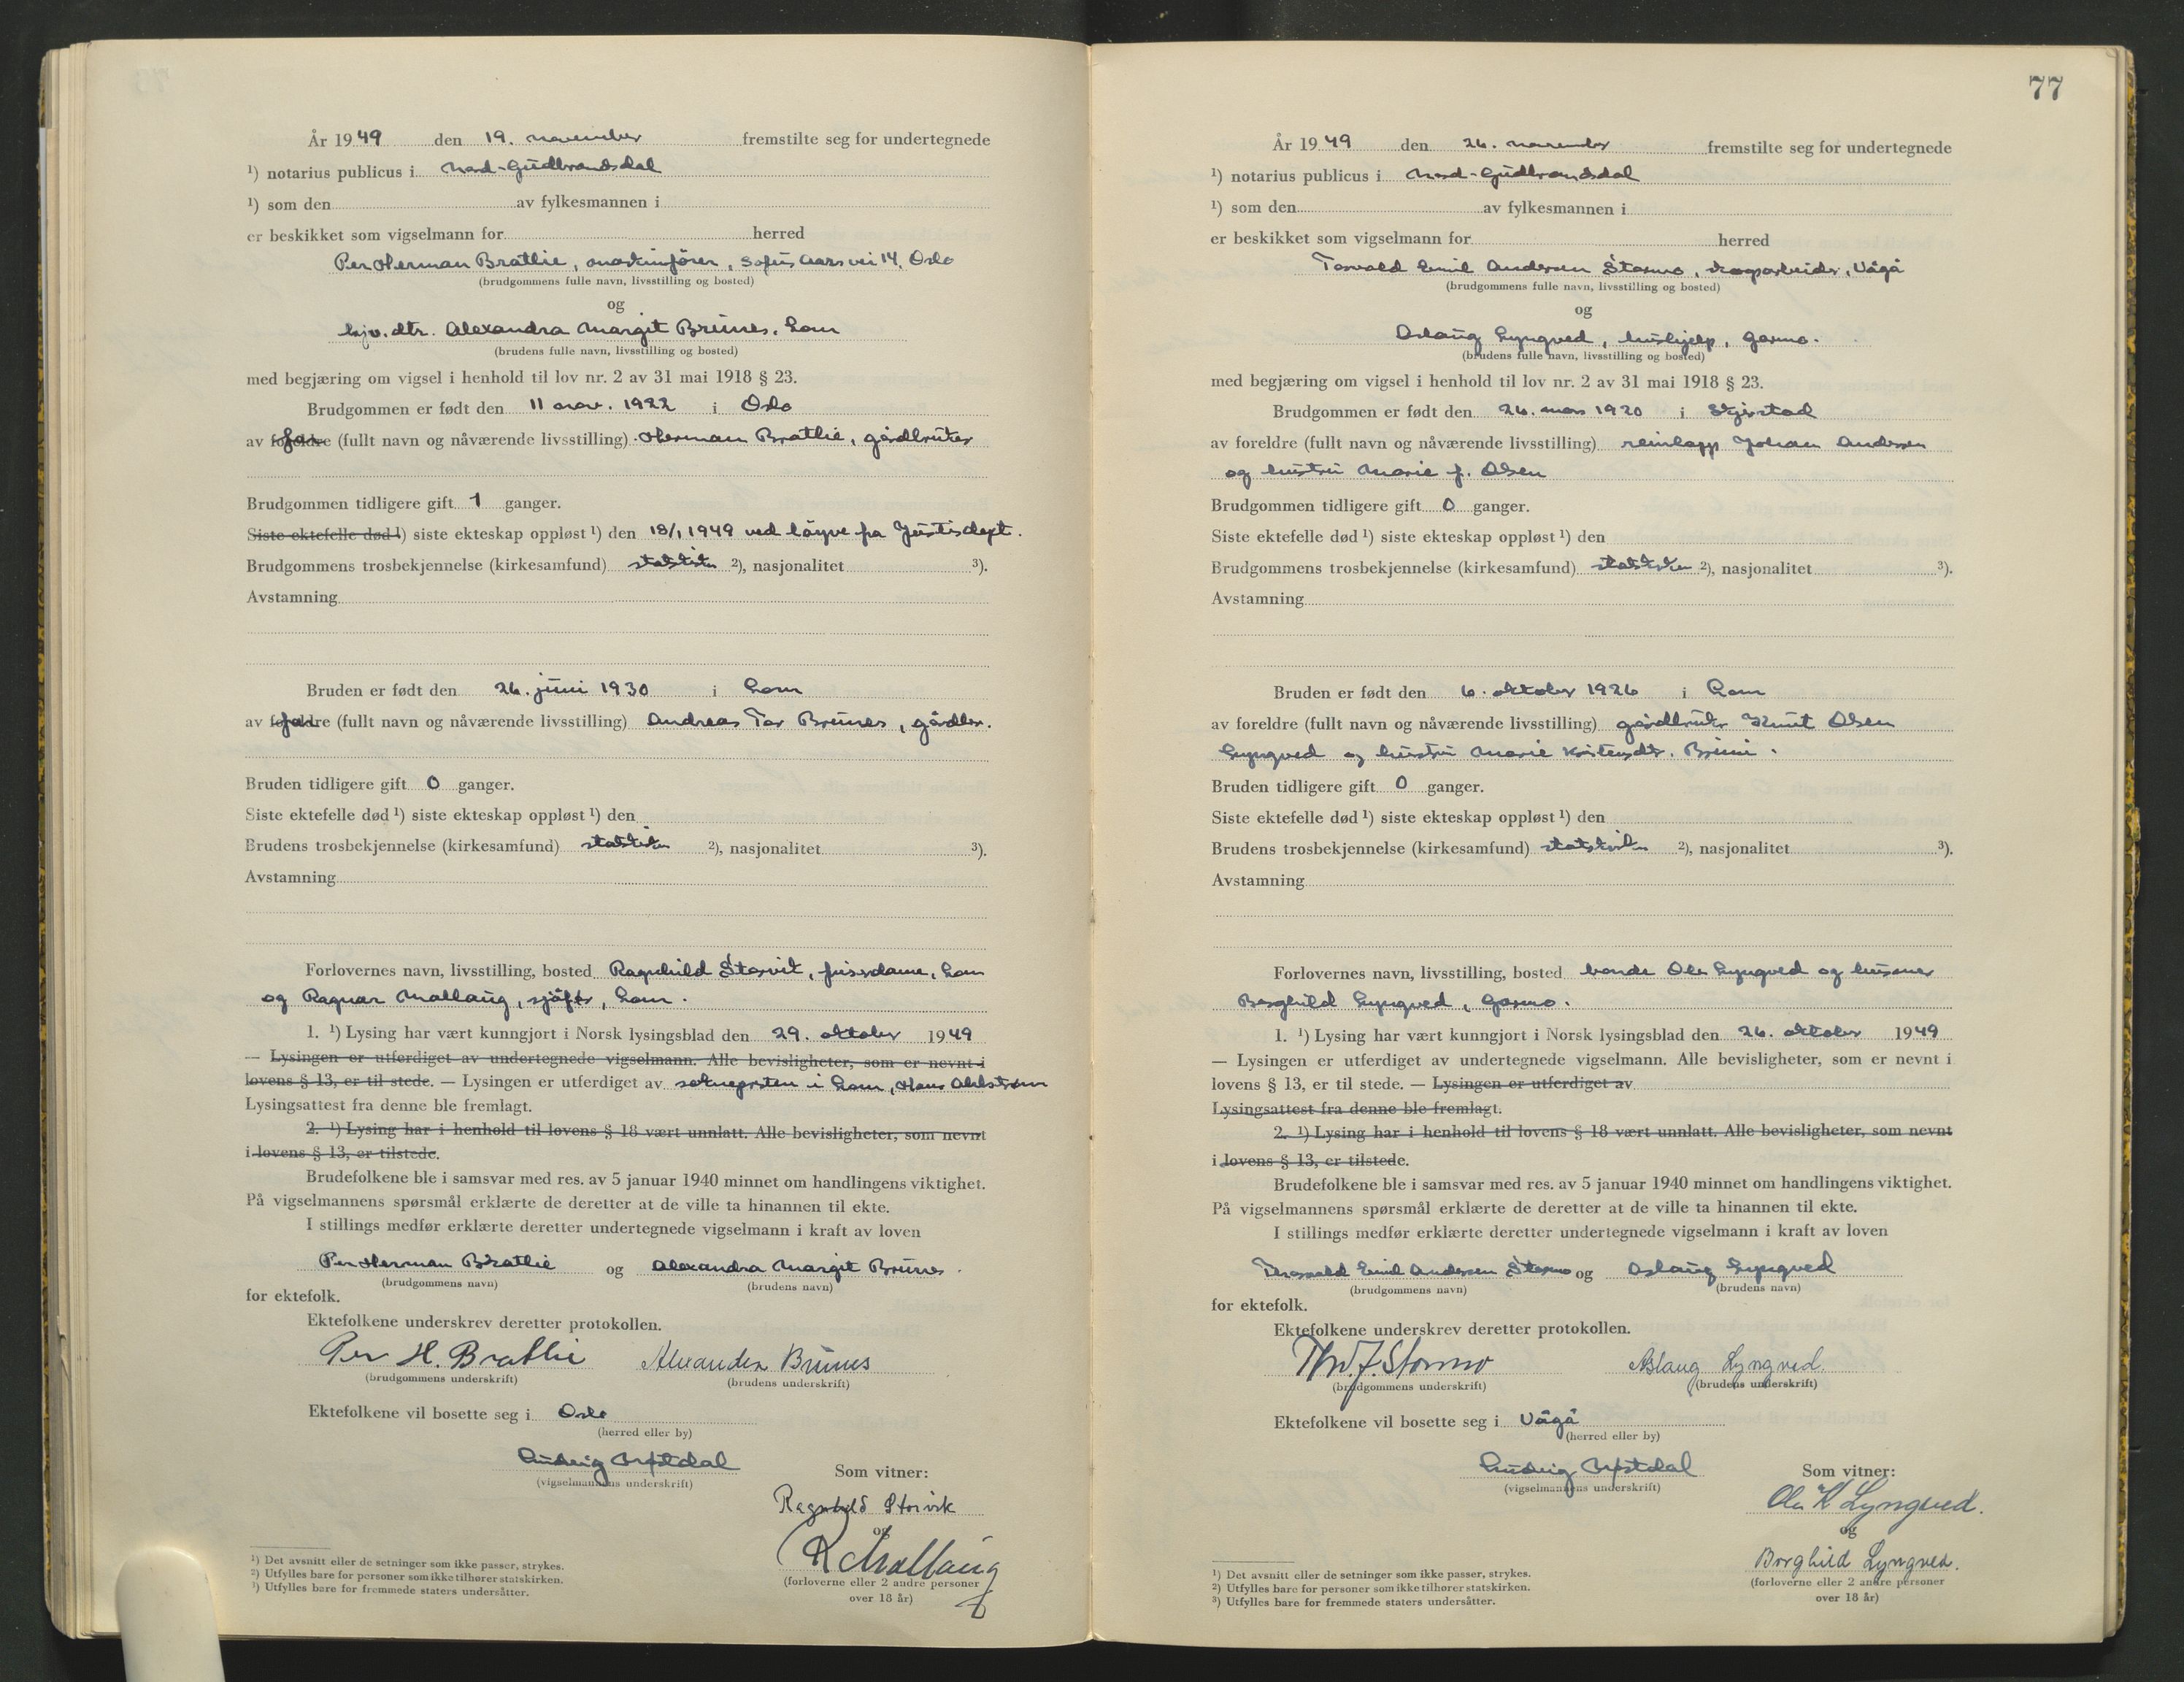 År 1949 den 19. november fremstilte seg for undertegnede
¹) notarius publicus i Nord-Gudbrandsdal
¹) som den av fylkesmannen i
er beskikket som vigselmann for herred
Per Herman Brathie, maskinfører, Sofus Aars vei 14, Oslo
(brudgommens fulle navn, livsstilling og bosted)
og
hjv. dtr. Alexandra Margit Brimes, Lom
(brudens fulle navn, livsstilling og bosted)
med begjæring om vigsel i henhold til lov nr. 2 av 31 mai 1918 § 23.
Brudgommen er født den 11 nov. 1922 i Oslo
av foreldre far (fullt navn og nåværende livsstilling) Herman Brathie, gårdbruker
Brudgommen tidligere gift 1 ganger.
Siste ektefelle død ¹) siste ekteskap oppløst ¹) den 18/1 1949 ved løyve fra Justisdept.
Brudgommens trosbekjennelse (kirkesamfund) statskirken ²), nasjonalitet ³).
Avstamning
Bruden er født den 26. juni 1930 i Lom
av foreldre far (fullt navn og nåværende livsstilling) Andreas Tor Brimes, gårdbr.
Bruden tidligere gift 0 ganger.
Siste ektefelle død ¹) siste ekteskap oppløst ¹) den
Brudens trosbekjennelse (kirkesamfund) statskirken ²), nasjonalitet ³).
Avstamning
Forlovernes navn, livsstilling, bosted Ragnhild Storvik, frisørdame, Lom
og Ragnar Mallaug, sjåfør, Lom.
1. ¹) Lysing har vært kunngjort i Norsk lysingsblad den 29. oktober 1949
— Lysingen er utferdiget av undertegnede vigselmann. Alle bevisligheter, som er nevnt i
lovens § 13, er til stede. — Lysingen er utferdiget av soknepresten i Lom, Hans Ahlstrøm
Lysingsattest fra denne ble fremlagt.
2. ¹) Lysing har i henhold til lovens § 18 vært unnlatt. Alle bevisligheter, som nevnt
i lovens § 13, er tilstede.
Brudefolkene ble i samsvar med res. av 5 januar 1940 minnet om handlingens viktighet.
På vigselmannens spørsmål erklærte de deretter at de ville ta hinannen til ekte.
I stillings medfør erklærte deretter undertegnede vigselmann i kraft av loven
Per Herman Brathie og Alexandra Margit Brimes.
(brudgommens navn) (brudens navn)
for ektefolk.
Ektefolkene underskrev deretter protokollen.
Per H. Brathie Alexandra Brimes
(brudgommens underskrift) (brudens underskrift)
Ektefolkene vil bosette seg i Oslo
(herred eller by)
Ludvig Mostdal
(vigselmannens underskrift)
Som vitner:
Ragnhild Storvik
og
R Mallaug
(forloverne eller 2 andre personer
over 18 år)
¹) Det avsnitt eller de setninger som ikke passer, strykes.
²) Utfylles bare for personer som ikke tilhører statskirken.
³) Utfylles bare for fremmede staters undersåtter.
77
År 1949 den 26. november fremstilte seg for undertegnede
¹) notarius publicus i Nord-Gudbrandsdal
¹) som den av fylkesmannen i
er beskikket som vigselmann for herred
Torvald Emil Andersen Stormo, skogsarbeider, Vågå
(brudgommens fulle navn, livsstilling og bosted)
og
Aslaug Lyngved, hushjelp, Garmo.
(brudens fulle navn, livsstilling og bosted)
med begjæring om vigsel i henhold til lov nr. 2 av 31 mai 1918 § 23.
Brudgommen er født den 26. mars 1920 i Skjerstad
av foreldre (fullt navn og nåværende livsstilling) reinlapp Johan Andersen
og hustru Marie f. Olsen
Brudgommen tidligere gift 0 ganger.
Siste ektefelle død ¹) siste ekteskap oppløst ¹) den
Brudgommens trosbekjennelse (kirkesamfund) statskirken ²), nasjonalitet ³).
Avstamning
Bruden er født den 6. oktober 1926 i Lom
av foreldre (fullt navn og nåværende livsstilling) gårdbruker Knut Olsen
Lyngved og hustru Marie Kristensdtr. Brimi.
Bruden tidligere gift 0 ganger.
Siste ektefelle død ¹) siste ekteskap oppløst ¹) den
Brudens trosbekjennelse (kirkesamfund) statskirken ²), nasjonalitet ³).
Avstamning
Forlovernes navn, livsstilling, bosted bonde Ola Lyngved og husmor
Borghild Lyngved, Garmo.
1. ¹) Lysing har vært kunngjort i Norsk lysingsblad den 26. oktober 1949
— Lysingen er utferdiget av undertegnede vigselmann. Alle bevisligheter, som er nevnt i
lovens § 13, er til stede. — Lysingen er utferdiget av
Lysingsattest fra denne ble fremlagt.
2. ¹) Lysing har i henhold til lovens § 18 vært unnlatt. Alle bevisligheter, som nevnt
i lovens § 13, er tilstede.
Brudefolkene ble i samsvar med res. av 5 januar 1940 minnet om handlingens viktighet.
På vigselmannens spørsmål erklærte de deretter at de ville ta hinannen til ekte.
I stillings medfør erklærte deretter undertegnede vigselmann i kraft av loven
Thorvald Emil Andersen Stormo og Aslaug Lyngved
(brudgommens navn) (brudens navn)
for ektefolk.
Ektefolkene underskrev deretter protokollen.
Thv. J. Stormo Aslaug Lyngved.
(brudgommens underskrift) (brudens underskrift)
Ektefolkene vil bosette seg i Vågå
(herred eller by)
Ludvig Mostdal
(vigselmannens underskrift)
Som vitner:
Ola K Lyngved.
og
Borghild Lyngved.
(forloverne eller 2 andre personer
over 18 år)
¹) Det avsnitt eller de setninger som ikke passer, strykes.
²) Utfylles bare for personer som ikke tilhører statskirken.
³) Utfylles bare for fremmede staters undersåtter.